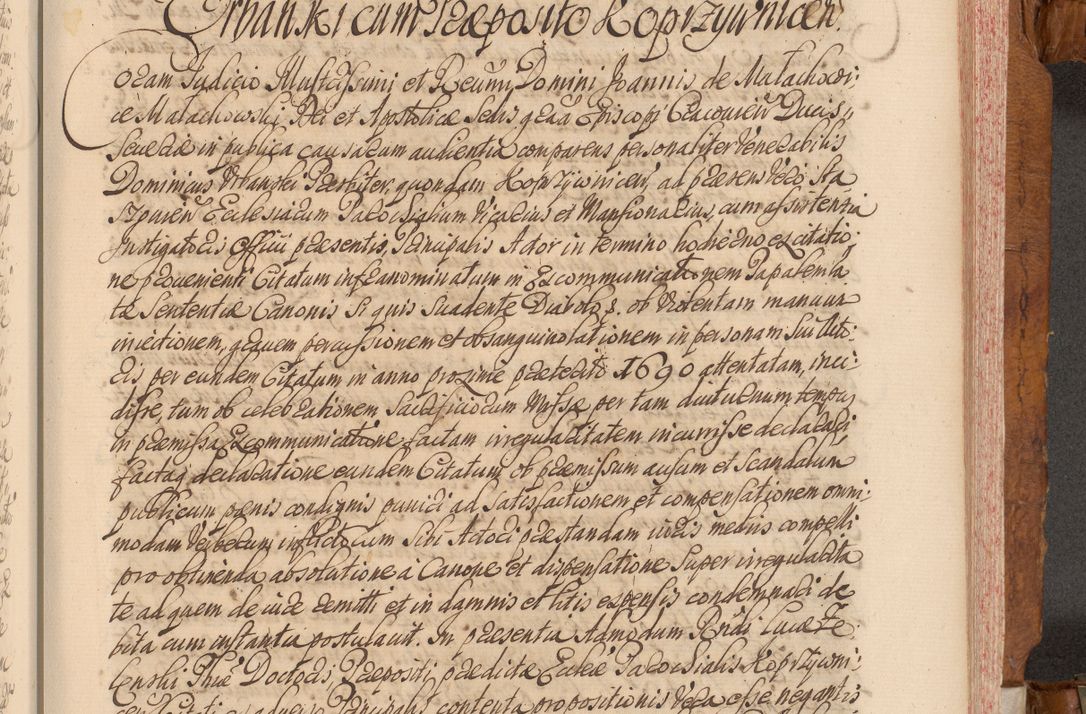 Urbanski cum Præposito Koprzywnicen.
Coram Judicio Illustrissimi et Reũmi Domini Joannis de Małachowi-
ce Małachowski Dei et Apostolicæ Sedis gr̃a Episcopi Cracovien Ducis
Severiæ in publica causarum audientia comparens personaliter Venerabilis
Dominicus Urbanski Præsbiter, quondam Koprzywnicen, ad præsens vero Sta
szovien Ecclesiarum Parochialium Vicarius et Mansionarius, cum assistentia
Instigatoris Officii præsentis, Principalis Actor in termino hodierno ex citatio-
ne proveniente Citatum infranominatum in Excommunicationem Papalem la
tæ Sententiæ Canonis Si quis Suadente Diabolo &. ob Violentam manuum
iniectionem, gravem percussionem et obsanguinolationem in personam Sui Acto-
ris per eundem Citatum in anno proxime præterito 1690 attentatam, inci-
disse, tum ob celebrationem Sacrificiorum Missæ per tam diuturnum tempus
in præmissa Excommunicatione factam irregularitatem incurrisse declarari
factaq̃ declaratione eundem Citatum ob præmissum ausum et scandalum
publicum pœnis condignis puniri ad satisfactionem et compensationem omni-
modam Verberum inflictorum Sibi Actori præstandam iuris mediis compelli
pro obtinenda absolutione à Canone et dispensatione Super irregularita
te ad quem de iure remitti et in damnis et litis expensis condemnari de
bita cum instantia postulavit. In præsentia Admodum Rñdi Lucæ Ze-
lenski Phiæ Doctoris, Præpositi, prædictæ Ecclæ Parochialis Koprzywni-
cen Citati, adversus Principalis contenta propositionis vera esse negantis